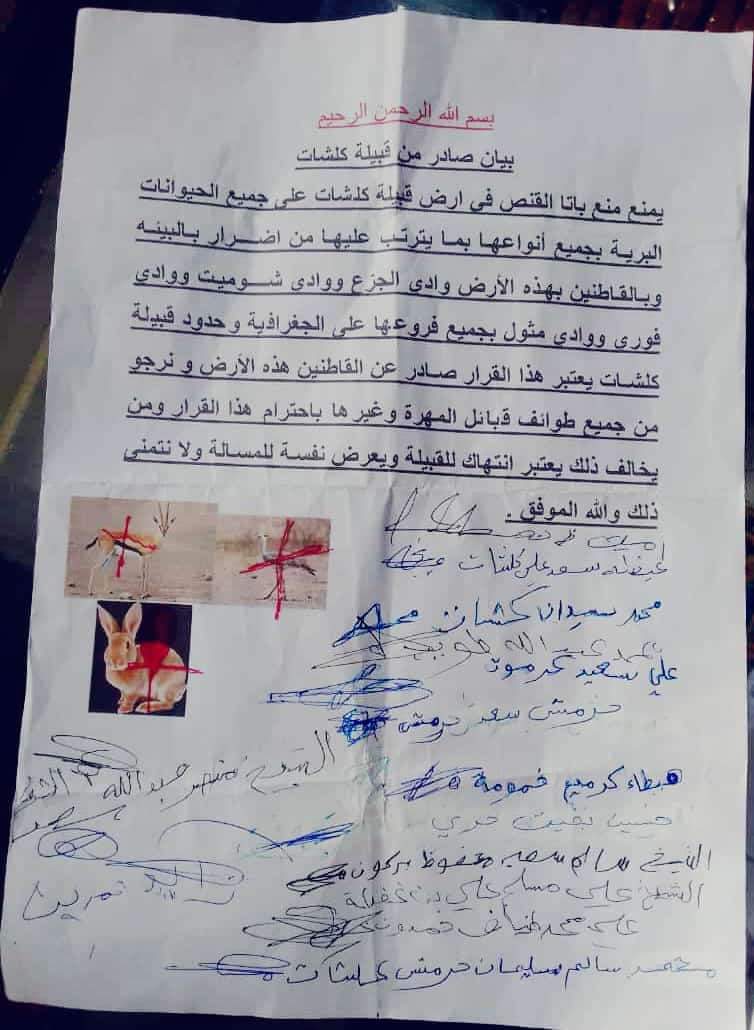 بسم الله الرحمن الرحيم
بيان صادر من قبيلة كلشات
يمنع منع باتا القنص في ارض قبيلة كلشات على جميع الحيوانات
البرية بجميع أنواعها بما يترتب عليها من اضرار بالبيئه
وبالقاطنين بهذه الأرض وادي الجزع ووادي شوميت ووادي
فوري ووادي مثول بجميع فروعها على الجغرافية وحدود قبيلة
كلشات يعتبر هذا القرار صادر عن القاطنين هذه الأرض و نرجو
من جميع طوائف قبائل المهرة وغيرها باحترام هذا القرار ومن
يخالف ذلك يعتبر انتهاك للقبيلة ويعرض نفسة للمسالة ولا نتمنى
ذلك والله الموفق .
سعد علي كلشات
محمد سعيد كلشات
محمد عبدالله
علي سعيد
حرمش سعد حرمش
الشيخ عبدالله
كرميع
بخيت
الشيخ سالم سعيد محفوظ
الشيخ علي مسلم علي بن
علي محمد
محمد سالم سليمان حرمش كلشات